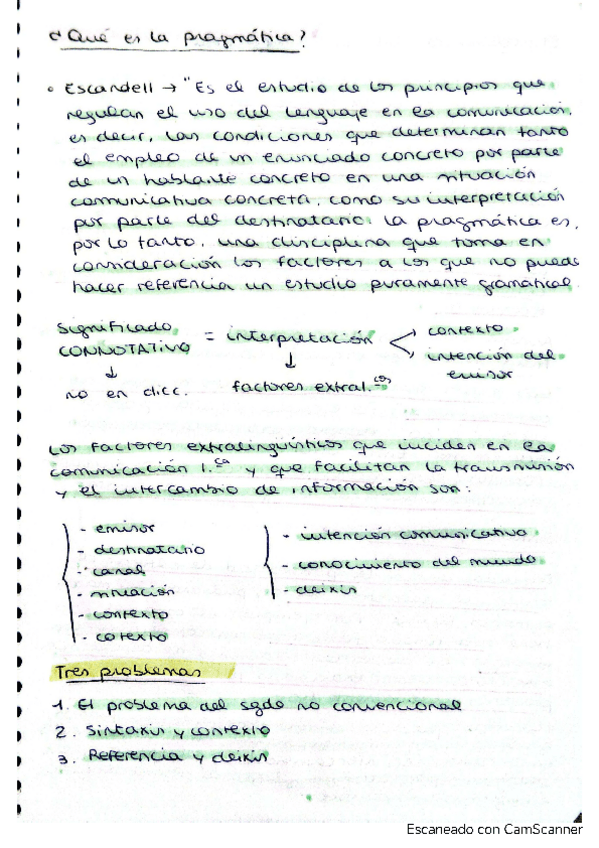 ¿Qué es la pragmática?
• Escandell → "Es el estudio de los principios que
regulan el uso del lenguaje en la comunicación,
es decir, las condiciones que determinan tanto
el empleo de un enunciado concreto por parte
de un hablante concreto en una situación
comunicativa concreta, como su interpretación
por parte del destinatario. La pragmática es,
por lo tanto, una disciplina que toma en
consideración los factores a los que no puede
hacer referencia un estudio puramente gramatical
Significado CONNOTATIVO = interpretación < contexto
intención del emisor
↓ ↓
no en dicc. factores extral.cos
Los factores extralingüísticos que inciden en la
comunicación l.ca y que facilitan la transmisión
y el intercambio de información son:
- emisor
- destinatario
- canal
- situación
- contexto
- cotexto
- intención comunicativa
- conocimiento del mundo
- deixis
Tres problemas
1. El problema del sgdo no convencional
2. Sintaxis y contexto
3. Referencia y deixis
Escaneado con CamScanner